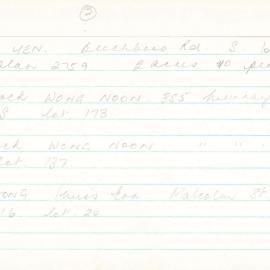 2
YEN. Beechboro Rd. S
plan 2759 2 acres 40
ock WONG NOON. 355
S lot. 173
ock WONG NOON " " "
lot. 137
ONG Malcolm St
16. lot. 24